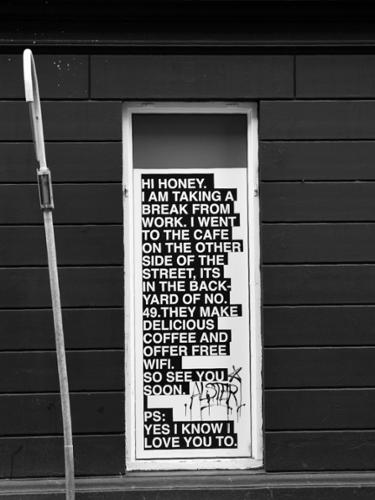 HI HONEY.
I AM TAKING A
BREAK FROM
WORK. I WENT
TO THE CAFE
ON THE OTHER
SIDE OF THE
STREET, ITS
IN THE BACK-
YARD OF NO.
49.THEY MAKE
DELICIOUS
COFFEE AND
OFFER FREE
WIFI.
SO SEE YOU
SOON.
PS:
YES I KNOW I
LOVE YOU TO.